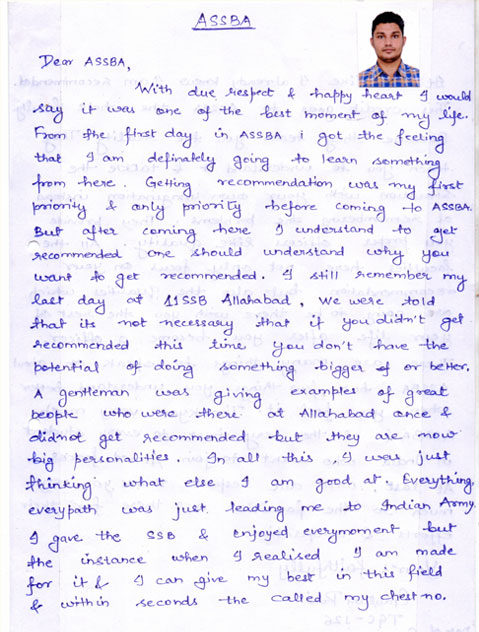 ASSBA
Dear ASSBA,
With due respect & happy heart I would
say it was one of the best moment of my life.
From the first day in ASSBA i got the feeling
that I am definately going to learn something
from here. Getting recommendation was my first
priority & only priority before coming to ASSBA.
But after coming here I understand to get
recommended one should understand why you
want to get recommended. I still remember my
last day at 11SSB Allahabad, We were told
that its not necessary that if you didn't get
recommended this time you don't have the
potential of doing something bigger of or better.
A gentleman was giving examples of great
people who were there at Allahabad once &
didnot get recommended but they are now
big personalities. In all this, I was just
thinking what else I am good at. Everything,
everypath was just leading me to Indian Army.
I gave the SSB & enjoyed everymoment but
the instance when I realised I am made
for it & I can give my best in this field
& within seconds the called my chest no.